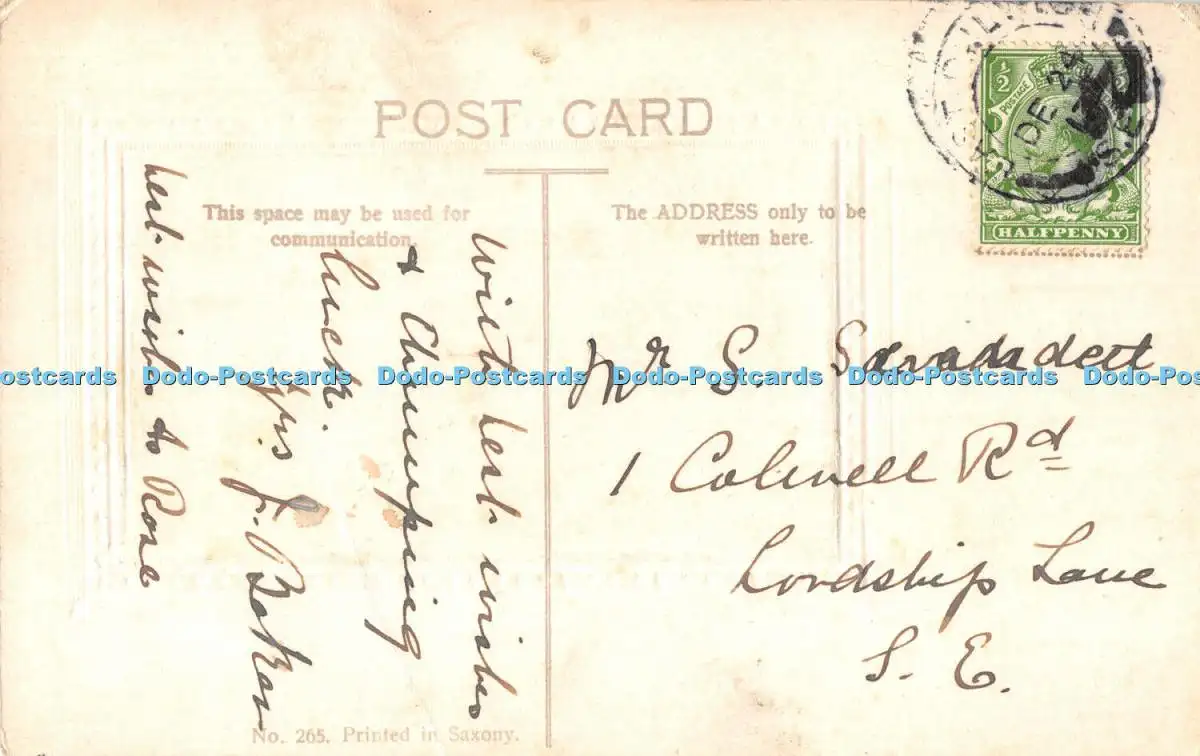 POST CARD
This space may be used for
communication.
The ADDRESS only to be
written here.
With best wishes
& Chumping
luck.
Yrs J. Baker
best wish to Rose
Mr S.
1 Colwell Rd
Lordship Lane
S. E.
½
POSTAGE
HALFPENNY
DE 24
S.E.
Dodo-Postcards Dodo-Postcards Dodo-Postcards Dodo-Postcards Dodo-Postcards Dodo-Postcards
No. 265. Printed in Saxony.